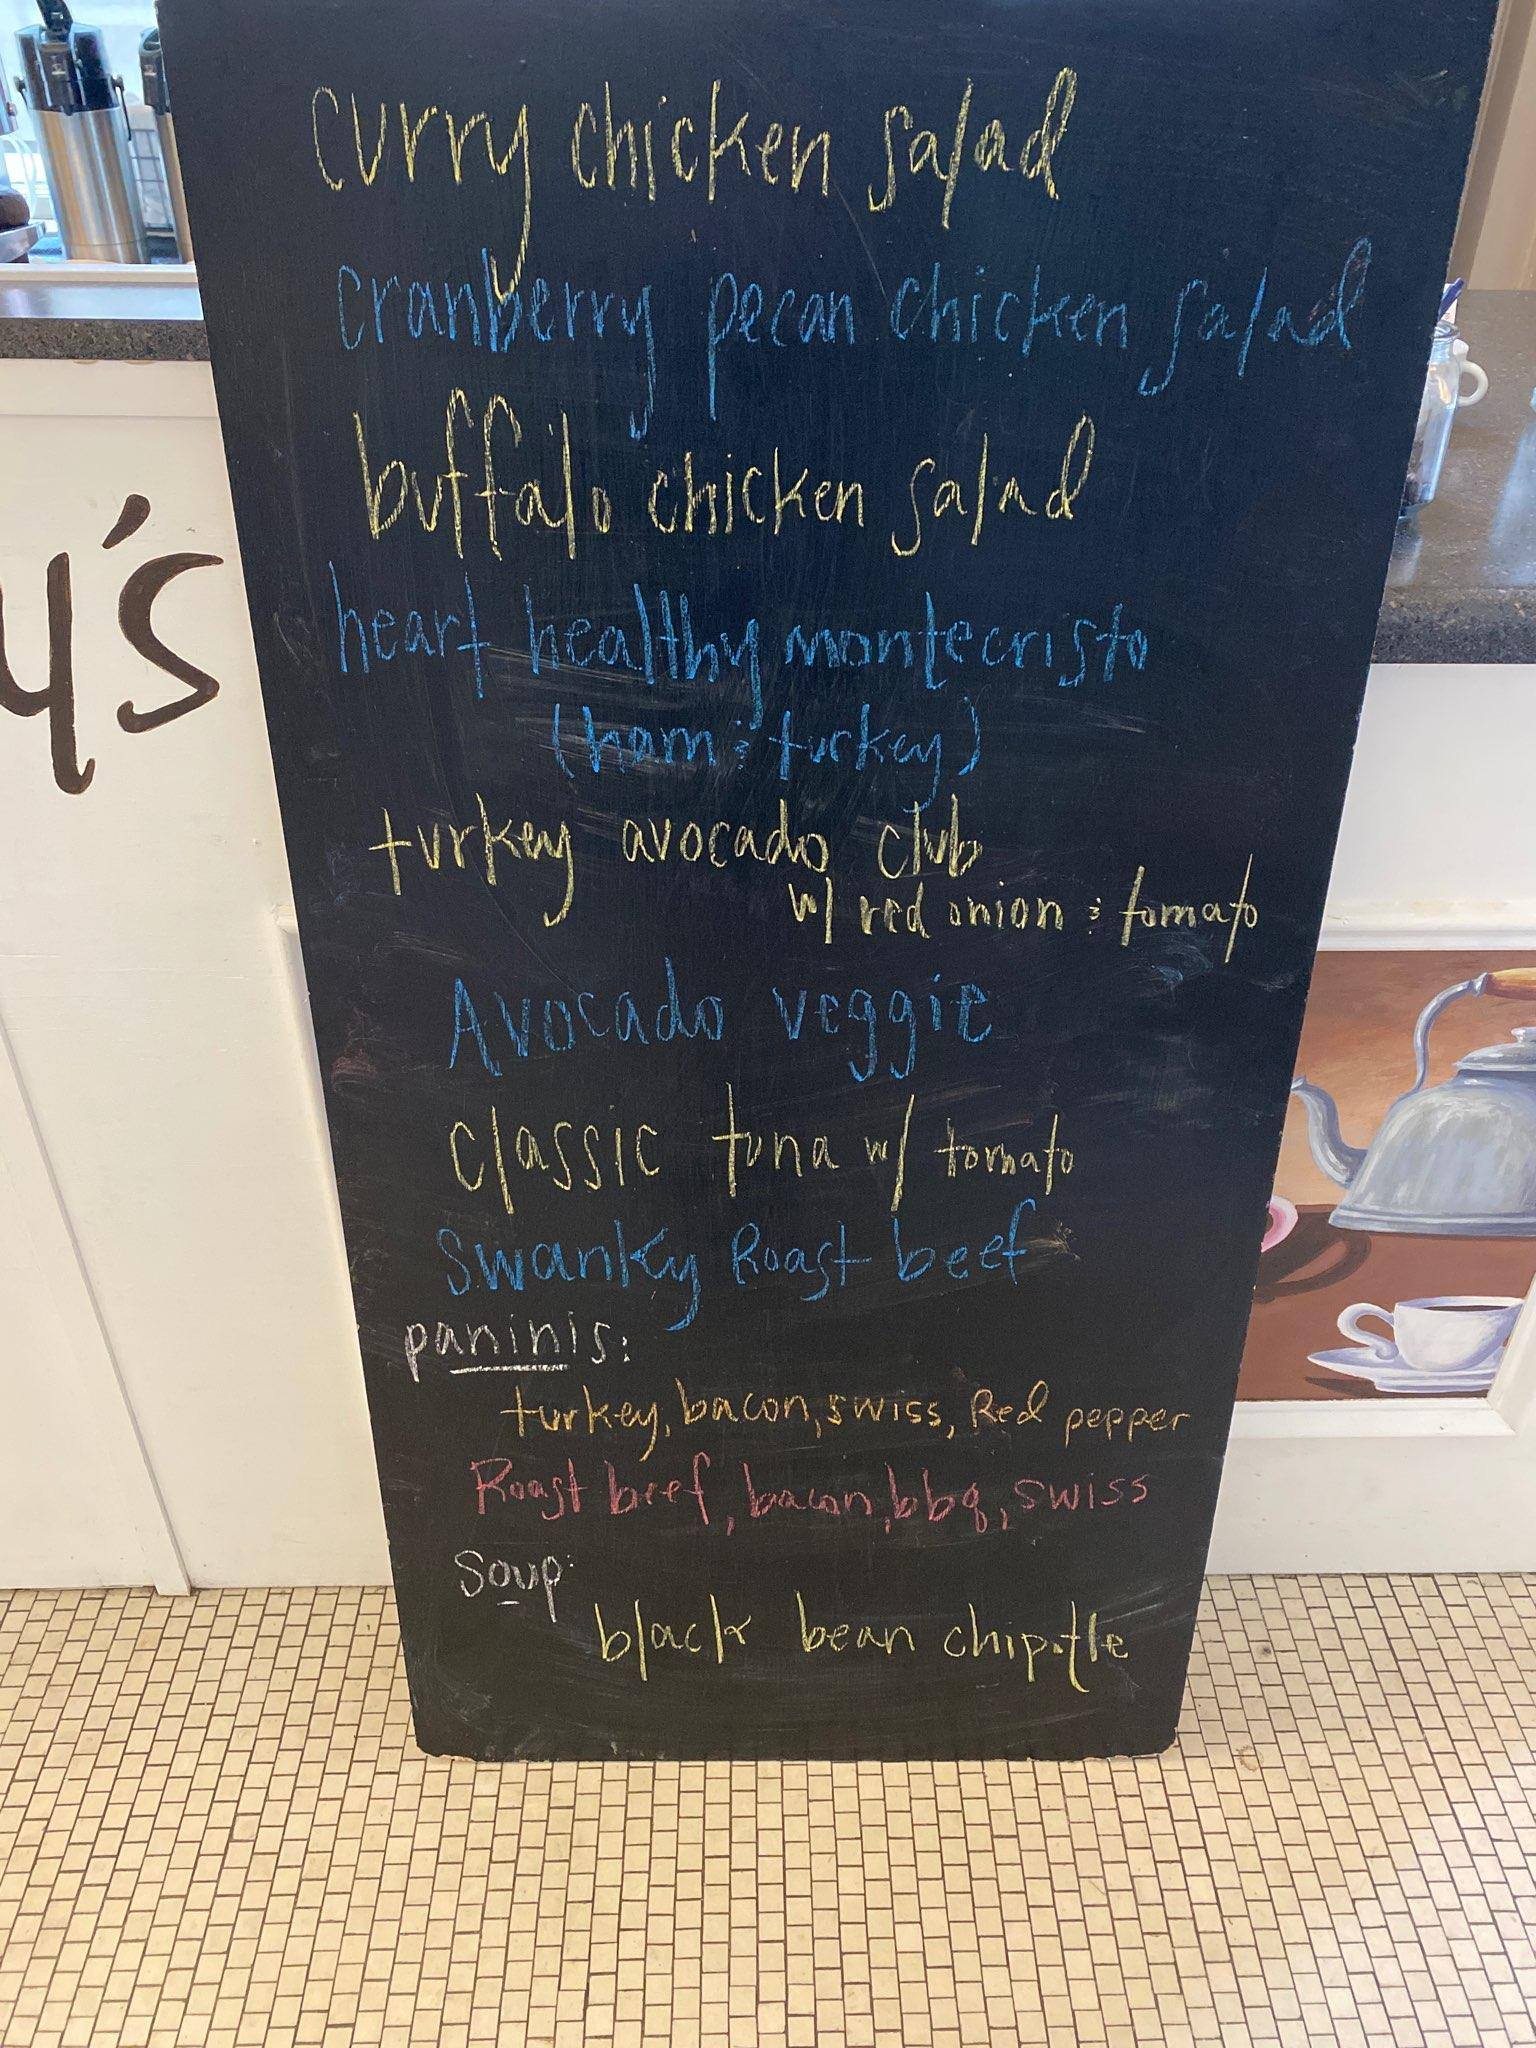 curry chicken salad
cranberry pecan chicken salad
buffalo chicken salad
heart healthy montecristo
(ham & turkey)
turkey avocado club
w/ red onion & tomato
Avocado veggie
classic tuna w/ tomato
Swanky Roast beef
paninis:
turkey, bacon, swiss, Red pepper
Roast beef, bacon, bbq, swiss
Soup:
black bean chipotle
y's